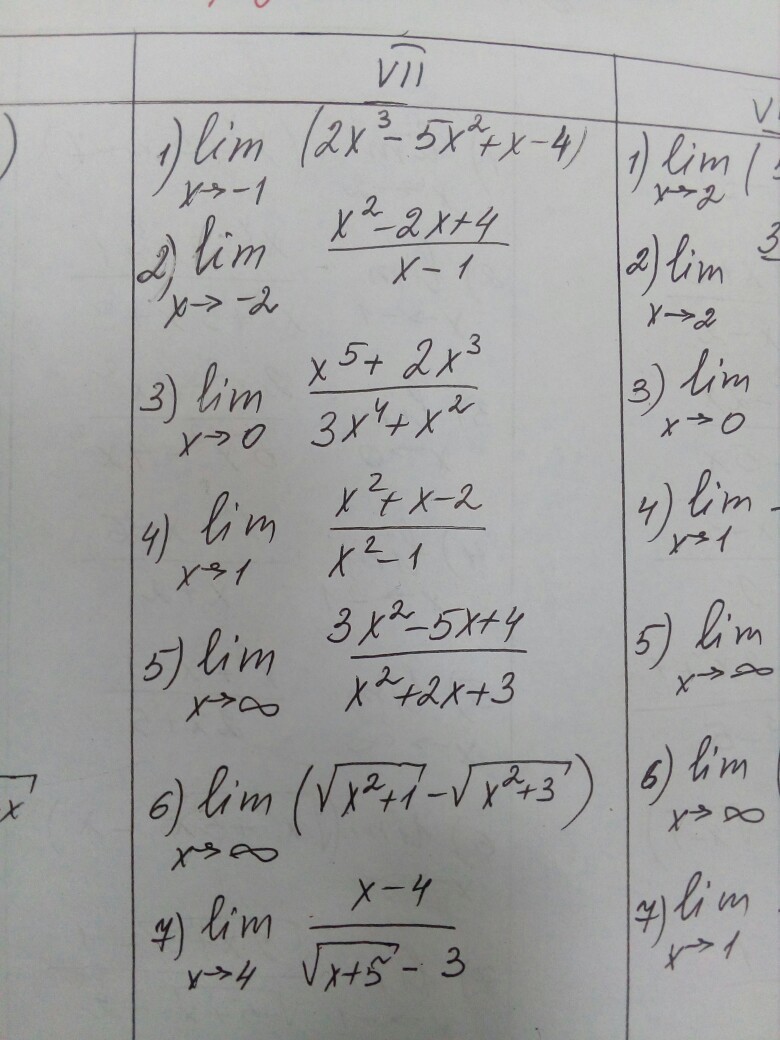 )
VII
1) lim (2x³ - 5x² + x - 4)
x→-1
2) lim x² - 2x + 4
x - 1
x→ -2
3) lim x⁵ + 2x³
3x⁴ + x²
x→0
4) lim x² + x - 2
x² - 1
x→1
5) lim 3x² - 5x + 4
x² + 2x + 3
x→∞
6) lim (√x²+1 - √x²+3)
x→∞
7) lim x - 4
√x+5 - 3
x→4
x
V
1) lim (
x→2
2) lim 3
x→2
3) lim
x→0
4) lim -
x→1
5) lim
x→∞
6) lim (
x→∞
7) lim
x→1